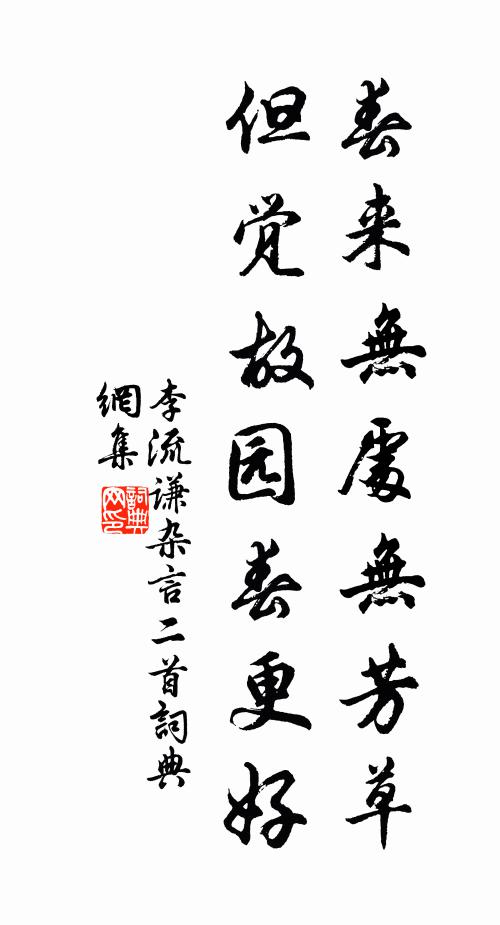 春来無處無芳草
但觉故园春更好
李流谦杂言二首詞典
網集
詞典
网印